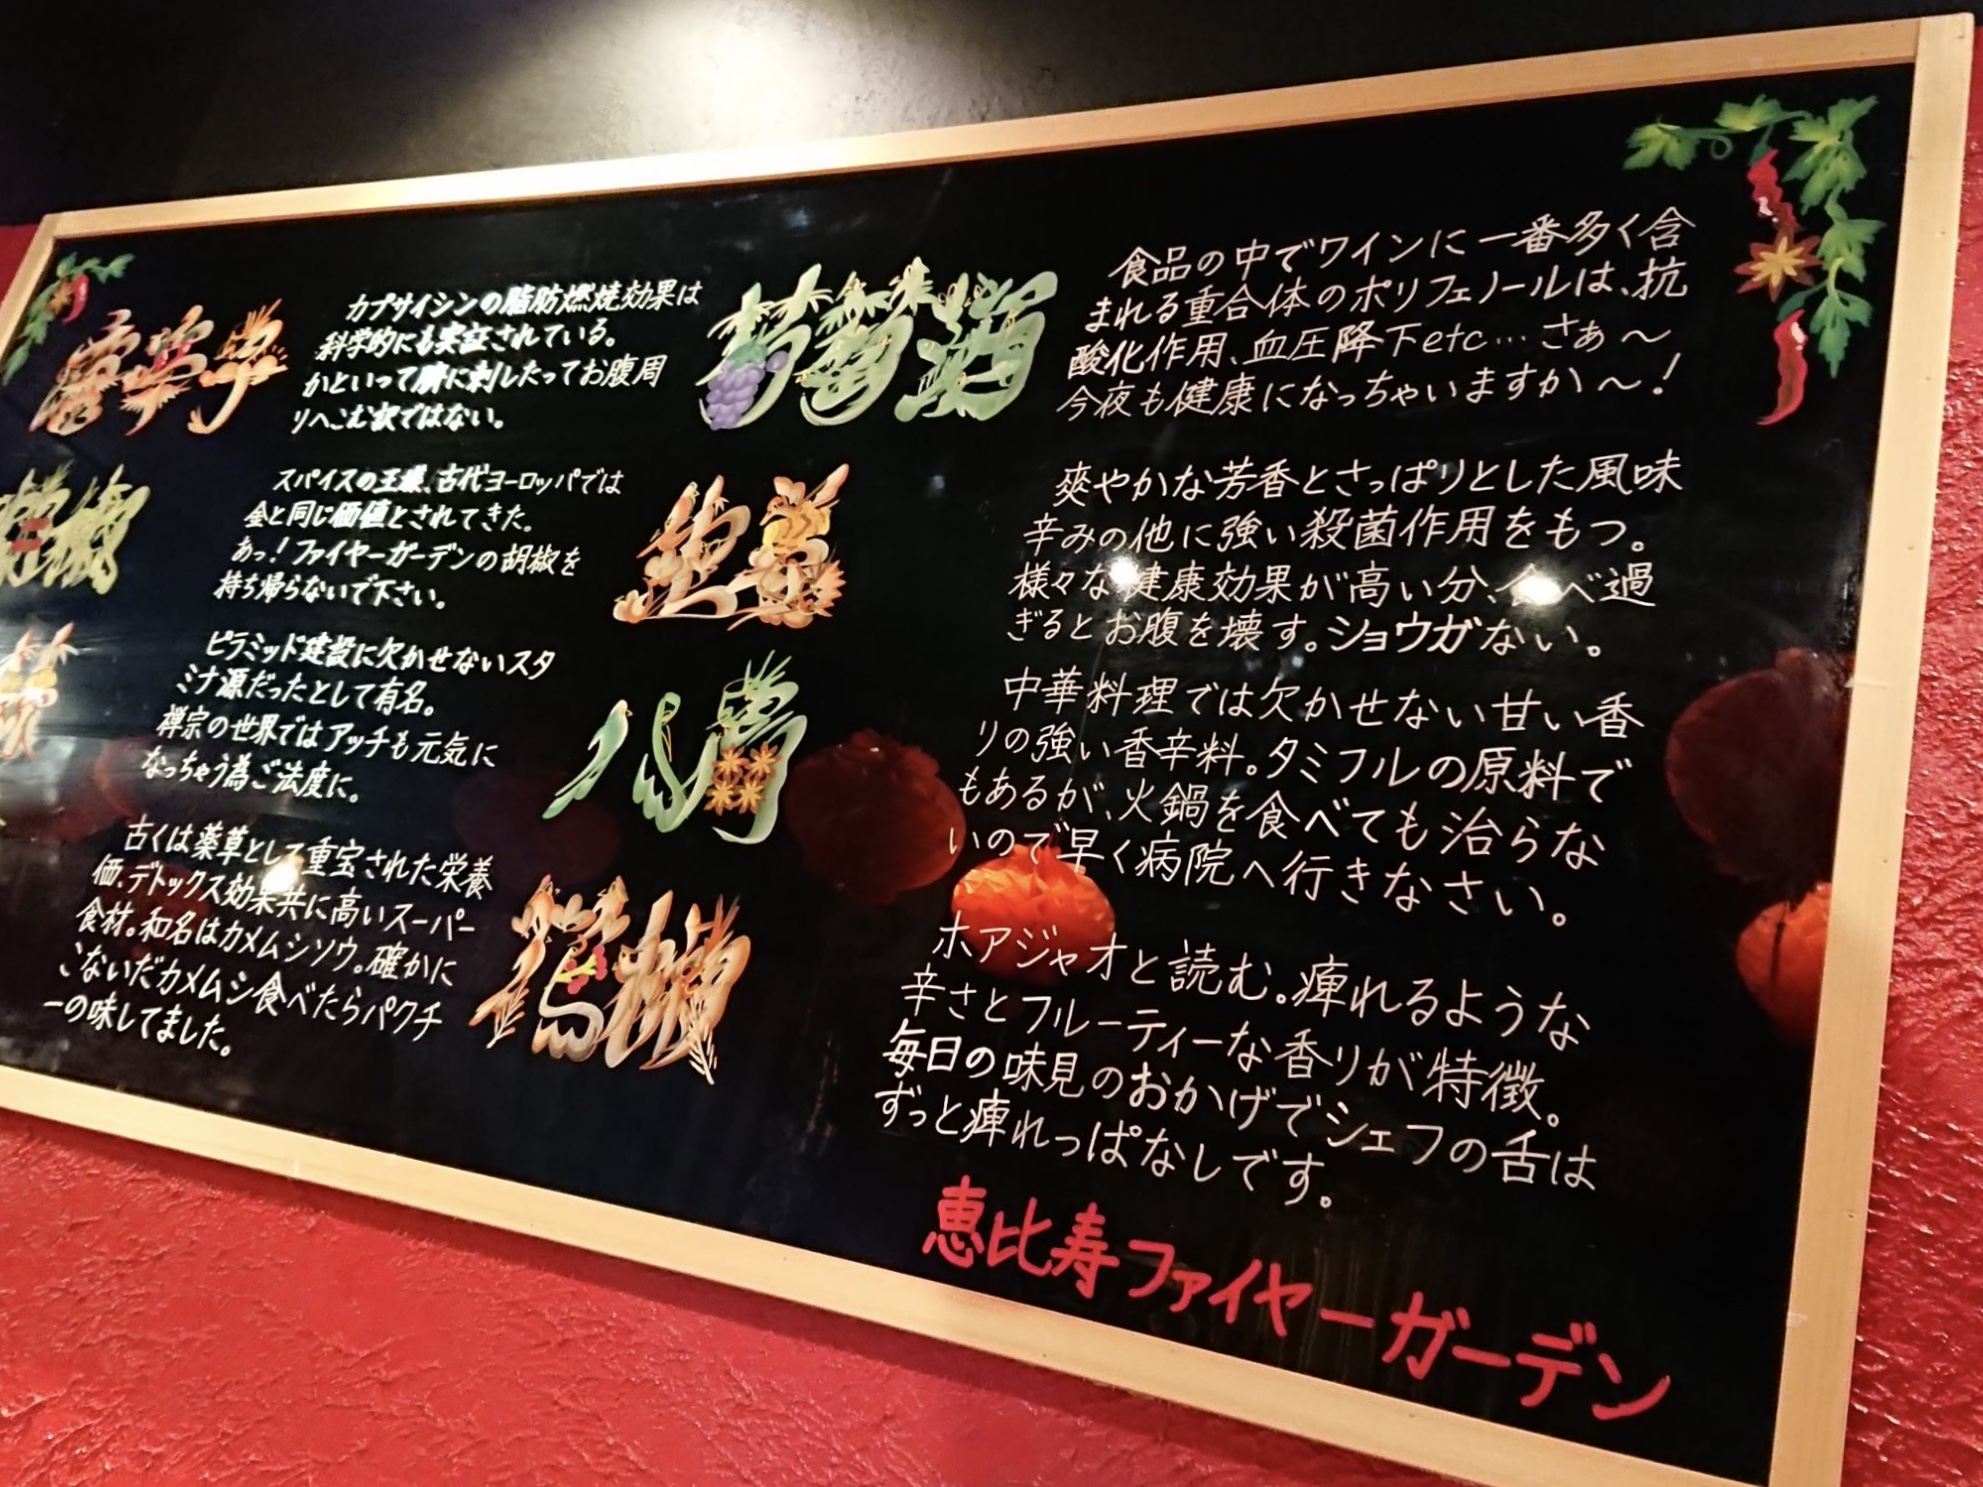 カプサイシンの脂肪燃焼効果は
科学的にも実証されている。
かといって臍に刺したってお腹周
りへこむ訳ではない。
スパイスの王様、古代ヨーロッパでは
金と同じ価値とされてきた。
あっ!ファイヤーガーデンの胡椒を
持ち帰らないで下さい。
ピラミッド建設に欠かせないスタ
ミナ源だったとして有名。
禅宗の世界ではアッチも元気に
なっちゃう為ご法度に。
古くは薬草として重宝された栄養
価、デトックス効果共に高いスーパー
食材。和名はカメムシソウ。確かに
こないだカメムシ食べたらパクチ
ーの味してました。
葡萄酒
食品の中でワインに一番多く含
まれる重合体のポリフェノールは、抗
酸化作用、血圧降下etc…さぁ〜
今夜も健康になっちゃいますか〜!
生姜
爽やかな芳香とさっぱりとした風味
辛みの他に強い殺菌作用をもつ。
様々な健康効果が高い分、食べ過
ぎるとお腹を壊す。ショウガない。
八角
中華料理では欠かせない甘い香
りの強い香辛料。タミフルの原料で
もあるが、火鍋を食べても治らな
いので早く病院へ行きなさい。
花椒
ホアジャオと読む。痺れるような
辛さとフルーティーな香りが特徴。
毎日の味見のおかげでシェフの舌は
ずっと痺れっぱなしです。
恵比寿ファイヤーガーデン